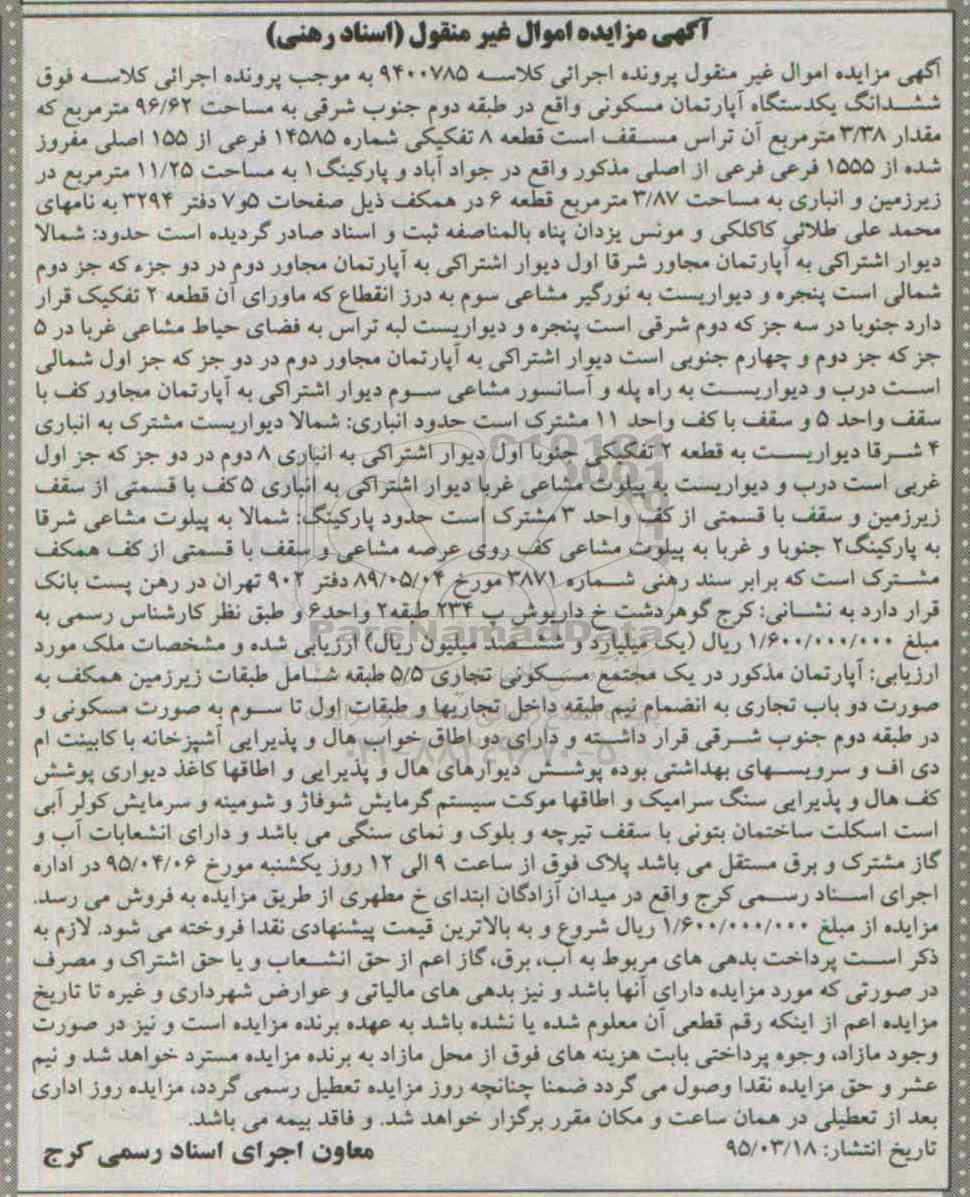 آگهی مزایده اموال غیر منقول (اسناد رهنی)
آگهی مزایده اموال غیر منقول پرونده اجرائی کلاسه ۹۴۰۰۷۸۵ به موجب پرونده اجرائی کلاسه فوق
ششدانگ یکدستگاه آپارتمان مسکونی واقع در طبقه دوم جنوب شرقی به مساحت ۹۶/۶۲ مترمربع که
مقدار ۳/۳۸ مترمربع آن تراس مسقف است قطعه ۸ تفکیکی شماره ۱۴۵۸۵ فرعی از ۱۵۵ اصلی مفروز
شده از ۱۵۵۵ فرعی فرعی از اصلی مذکور واقع در جواد آباد و پارکینگ۱ به مساحت ۱۱/۲۵ مترمربع در
زیرزمین و انباری به مساحت ۳/۸۷ مترمربع قطعه ۶ در همکف ذیل صفحات ۵و۷ دفتر ۳۲۹۴ به نامهای
محمد علی طلائی کاکلکی و مونس یزدان پناه بالمناصفه ثبت و اسناد صادر گردیده است حدود: شمالا
دیوار اشتراکی به آپارتمان مجاور شرقا اول دیوار اشتراکی به آپارتمان مجاور دوم در دو جزء که جز دوم
شمالی است پنجره و دیواریست به نورگیر مشاعی سوم به درز انقطاع که ماورای آن قطعه ۲ تفکیک قرار
دارد جنوبا در سه جز که دوم شرقی است پنجره و دیواریست لبه تراس به فضای حیاط مشاعی غربا در ۵
جز که جز دوم و چهارم جنوبی است دیوار اشتراکی به آپارتمان مجاور دوم در دو جز که جز اول شمالی
است درب و دیواریست به راه پله و آسانسور مشاعی سوم دیوار اشتراکی به آپارتمان مجاور کف با
سقف واحد ۵ و سقف با کف واحد ۱۱ مشترک است حدود انباری: شمالا دیواریست مشترک به انباری
۴ شرقا دیواریست به قطعه ۲ تفکیکی جنوبا اول دیوار اشتراکی به انباری ۸ دوم در دو جز که جز اول
غربی است درب و دیواریست به پیلوت مشاعی غربا دیوار اشتراکی به انباری ۵ کف با قسمتی از سقف
زیرزمین و سقف با قسمتی از کف واحد ۳ مشترک است حدود پارکینگ: شمالا به پیلوت مشاعی شرقا
به پارکینگ۲ جنوبا و غربا به پیلوت مشاعی کف روی عرصه مشاعی و سقف با قسمتی از کف همکف
مشترک است که برابر سند رهنی شماره ۳۸۷۱ مورخ ۸۹/۰۵/۰۴ دفتر ۹۰۲ تهران در رهن پست بانک
قرار دارد به نشانی: کرج گوهردشت خ داریوش پ ۲۳۴ طبقه۲ واحد۶ و طبق نظر کارشناس رسمی به
مبلغ ۱/۶۰۰/۰۰۰/۰۰۰ ریال (یک میلیارد و ششصد میلیون ریال) ارزیابی شده و مشخصات ملک مورد
ارزیابی: آپارتمان مذکور در یک مجتمع مسکونی تجاری ۵/۵ طبقه شامل طبقات زیرزمین همکف به
صورت دو باب تجاری به انضمام نیم طبقه داخل تجاریها و طبقات اول تا سوم به صورت مسکونی و
در طبقه دوم جنوب شرقی قرار داشته و دارای دو اطاق خواب هال و پذیرایی آشپزخانه با کابینت ام
دی اف و سرویسهای بهداشتی بوده پوشش دیوارهای هال و پذیرایی و اطاقها کاغذ دیواری پوشش
کف هال و پذیرایی سنگ سرامیک و اطاقها موکت سیستم گرمایش شوفاژ و شومینه و سرمایش کولر آبی
است اسکلت ساختمان بتونی با سقف تیرچه و بلوک و نمای سنگی می باشد و دارای انشعابات آب و
گاز مشترک و برق مستقل می باشد پلاک فوق از ساعت ۹ الی ۱۲ روز یکشنبه مورخ ۹۵/۰۴/۰۶ در اداره
اجرای اسناد رسمی کرج واقع در میدان آزادگان ابتدای خ مطهری از طریق مزایده به فروش می رسد.
مزایده از مبلغ ۱/۶۰۰/۰۰۰/۰۰۰ ریال شروع و به بالاترین قیمت پیشنهادی نقدا فروخته می شود. لازم به
ذکر است پرداخت بدهی های مربوط به آب، برق، گاز اعم از حق انشعاب و یا حق اشتراک و مصرف
در صورتی که مورد مزایده دارای آنها باشد و نیز بدهی های مالیاتی و عوارض شهرداری و غیره تا تاریخ
مزایده اعم از اینکه رقم قطعی آن معلوم شده یا نشده باشد به عهده برنده مزایده است و نیز در صورت
وجود مازاد، وجوه پرداختی بابت هزینه های فوق از محل مازاد به برنده مزایده مسترد خواهد شد و نیم
عشر و حق مزایده نقدا وصول می گردد ضمنا چنانچه روز مزایده تعطیل رسمی گردد، مزایده روز اداری
بعد از تعطیلی در همان ساعت و مکان مقرر برگزار خواهد شد. و فاقد بیمه می باشد.
تاریخ انتشار: ۹۵/۰۳/۱۸
معاون اجرای اسناد رسمی کرج
ParsNamadData